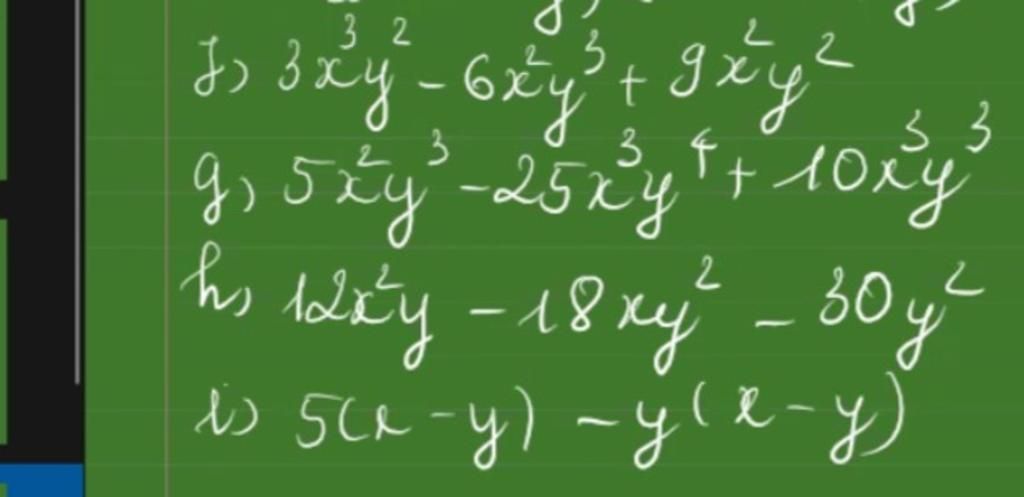 f) 3x³y² - 6x²y³ + 9x²y²
g) 5x²y³ - 25x³y⁴ + 10x³y³
h) 12x²y - 18xy² - 30y²
i) 5(x - y) - y(x - y)